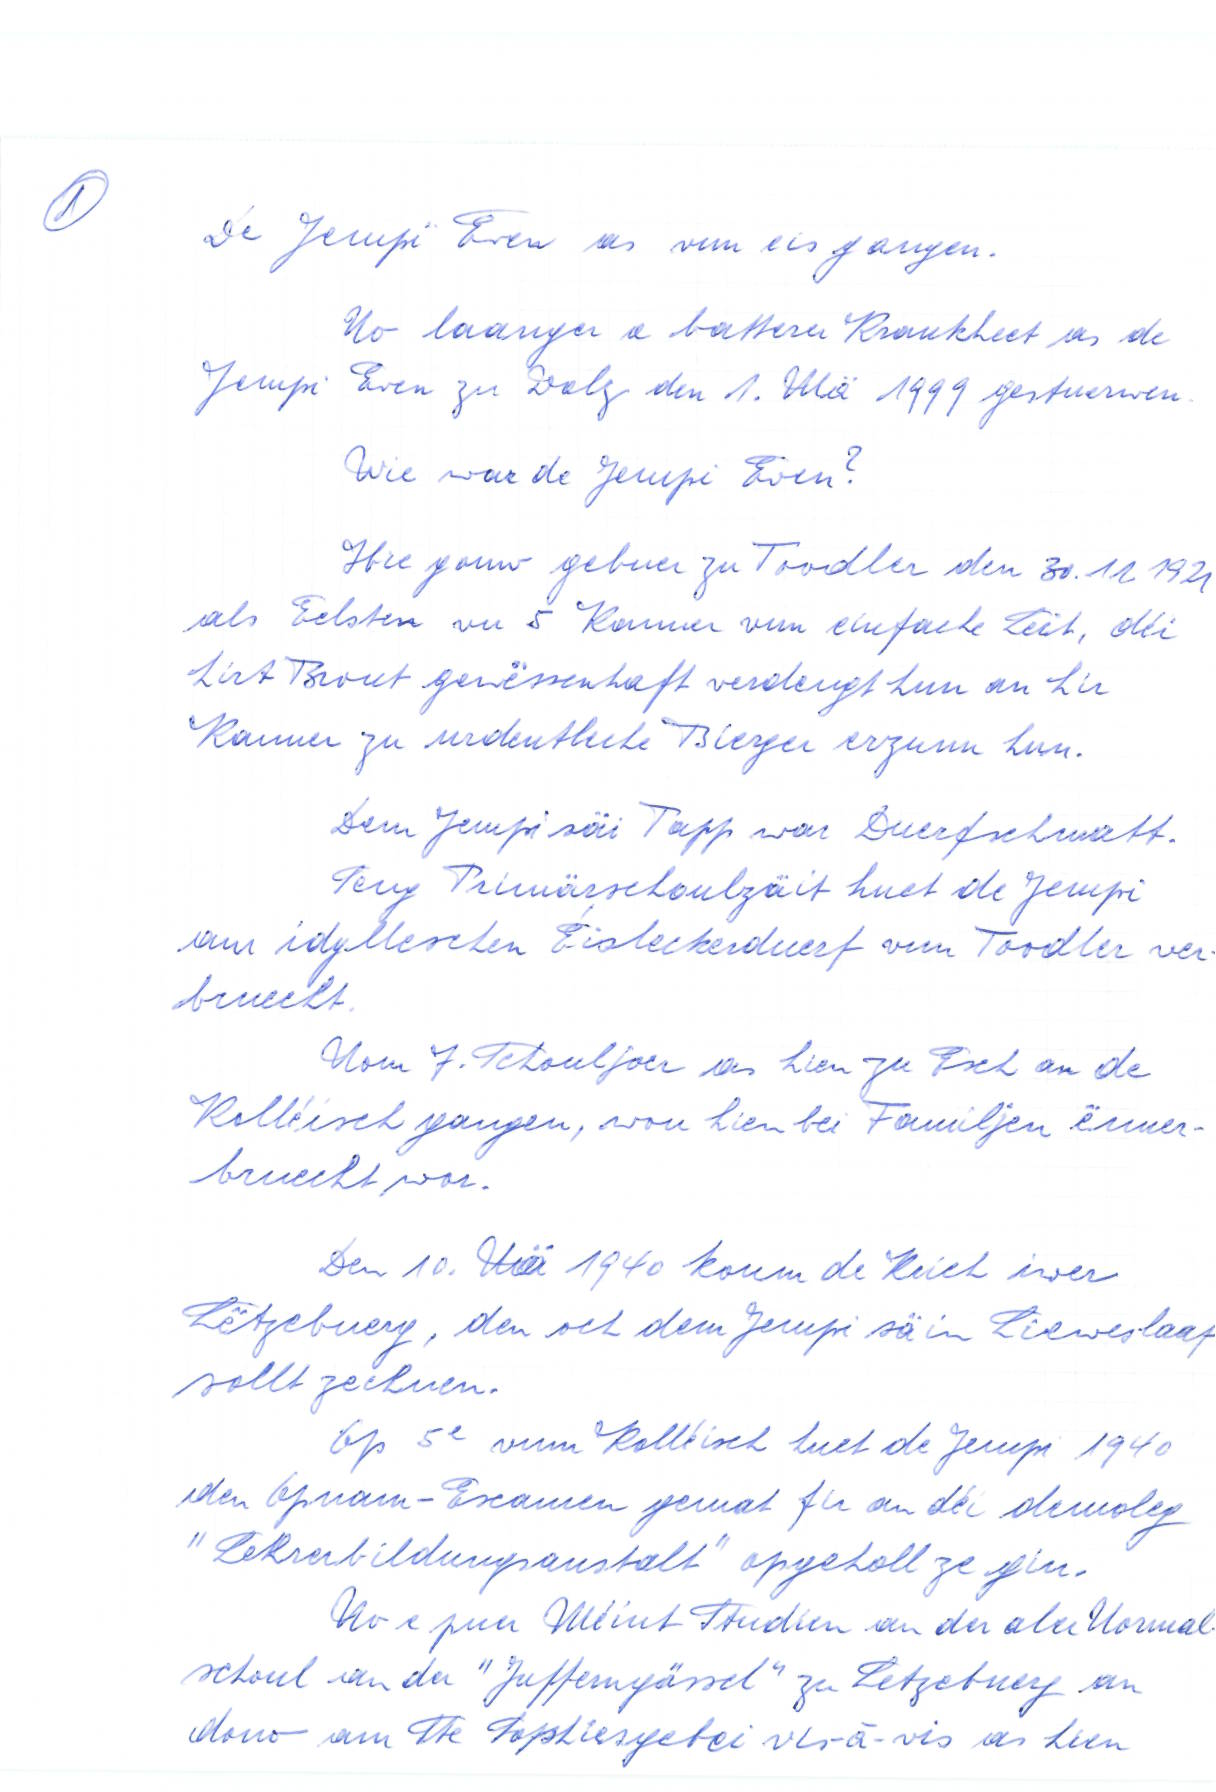 1
De Jempi Even as vun eis gangen.
No laanger a batterer Krankheet as de
Jempi Even zu Dolz den 1. Mä 1999 gestuerwen.
Wie war de Jempi Even?
Hie gouw gebuer zu Toodler den 30.11 1921
als Eelsten vu 5 Kanner vun einfache Leit, déi
hirt Brout gewëssenhaft verdengt hun an hir
Kanner zu urdentleche Bierger erzunn hun.
Dem Jempi säi Papp war Duerfschmatt.
Seng Primärschoulzäit huet de Jempi
am idylleschen Éisleckerduerf vun Toodler ver-
bruecht.
Vom 7. Schouljoer as hien zu Esch an de
Kolléisch gangen, wou hien bei Familjen ënner-
bruecht wor.
Den 10. Mä 1940 koum de Krich iwer
Lëtzebuerg, den och dem Jempi säin Lieweslaaf
sollt zechnen.
Op 5e vum Kolléisch huet de Jempi 1940
den Opnam-Examen gemat fir an déi demoleg
"Lehrerbildungsanstalt" opgeholl ze gin.
No e puer Méint Studien an der aler Normal-
schoul an der "Jofferngässel" zu Letzebuerg an
dono am Ste Sophiesgebei vis-à-vis as hien